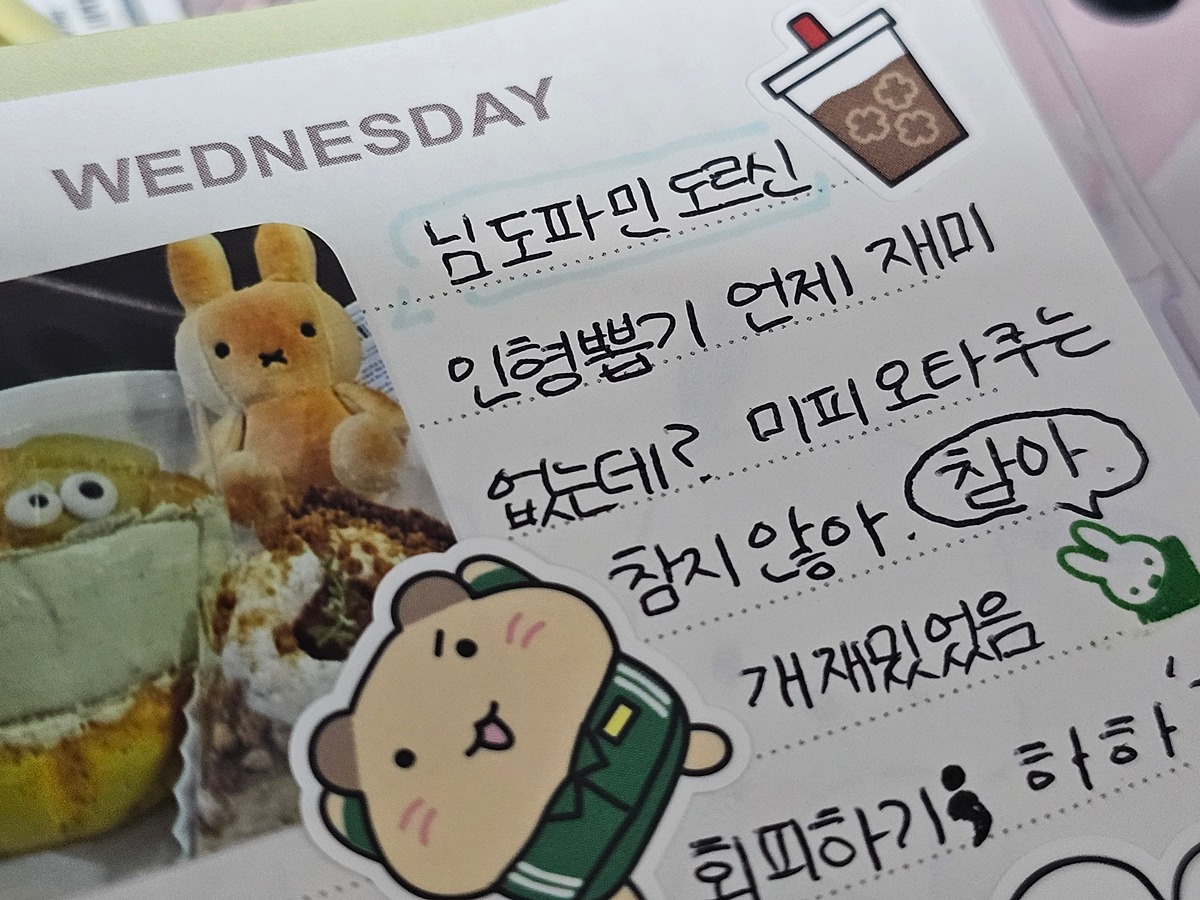 WEDNESDAY
님도파민 도르신
인형뽑기 언제 재미
없는데? 미피오타쿠는
참지 않아. 참아.
개재밌었음
회피하기; 하하